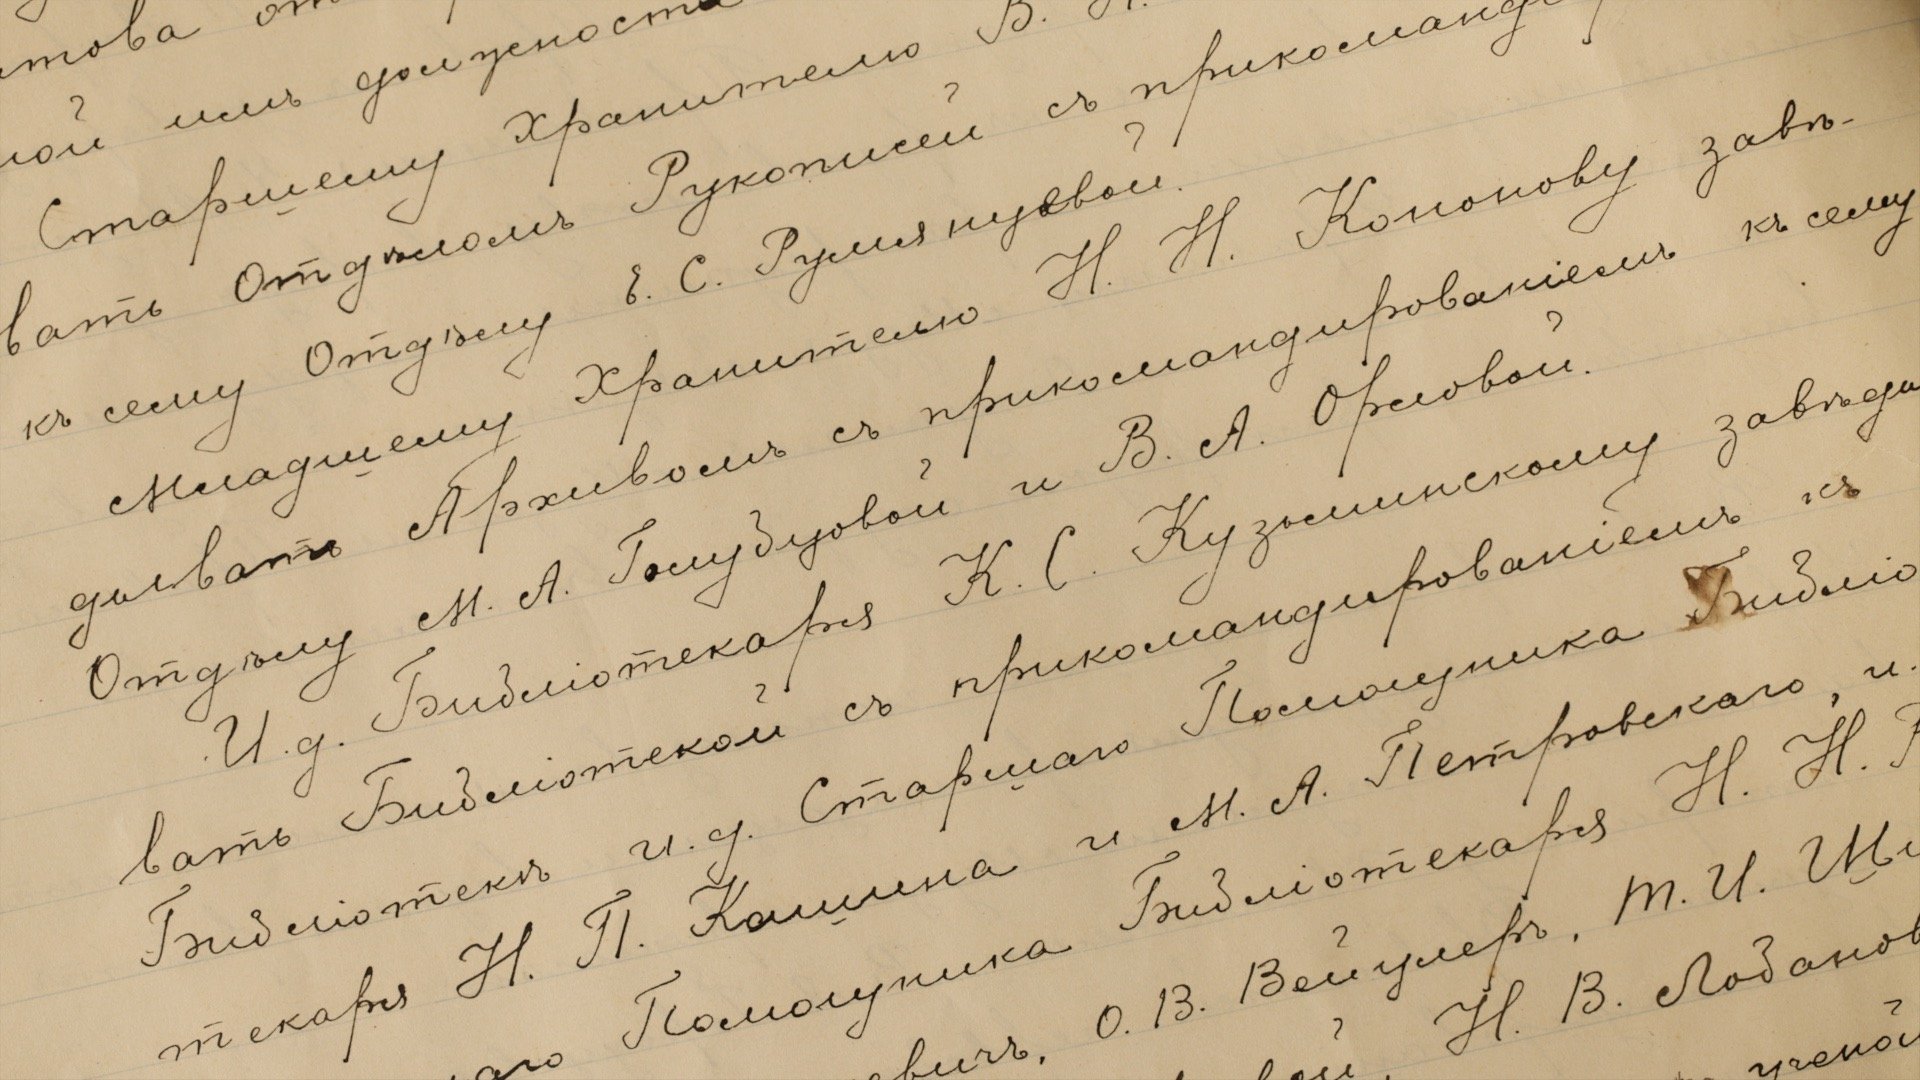 ной имъ должности
Старшему Хранителю В.
вать Отдѣломъ Рукописей съ прикоманди
къ сему Отдѣлу Е. С. Румянцевой.
Младшему Хранителю Н. Н. Кононову завѣ-
дывать Архивомъ съ прикомандированіемъ къ сему
Отдѣлу М. А. Голубцовой и В. А. Орловой.
И. д. Библіотекаря К. С. Кузьминскому завѣды
вать Библіотекой съ прикомандированіемъ къ
Библіотекѣ и. д. Старшаго Помощника Библіо
текаря Н. П. Кашина и М. А. Петровскаго, и.
Помощника Библіотекаря Н. Н.
евичъ, О. В. Вейцлеръ, Т. И.
вой, Н. В. Лобанов
ученой